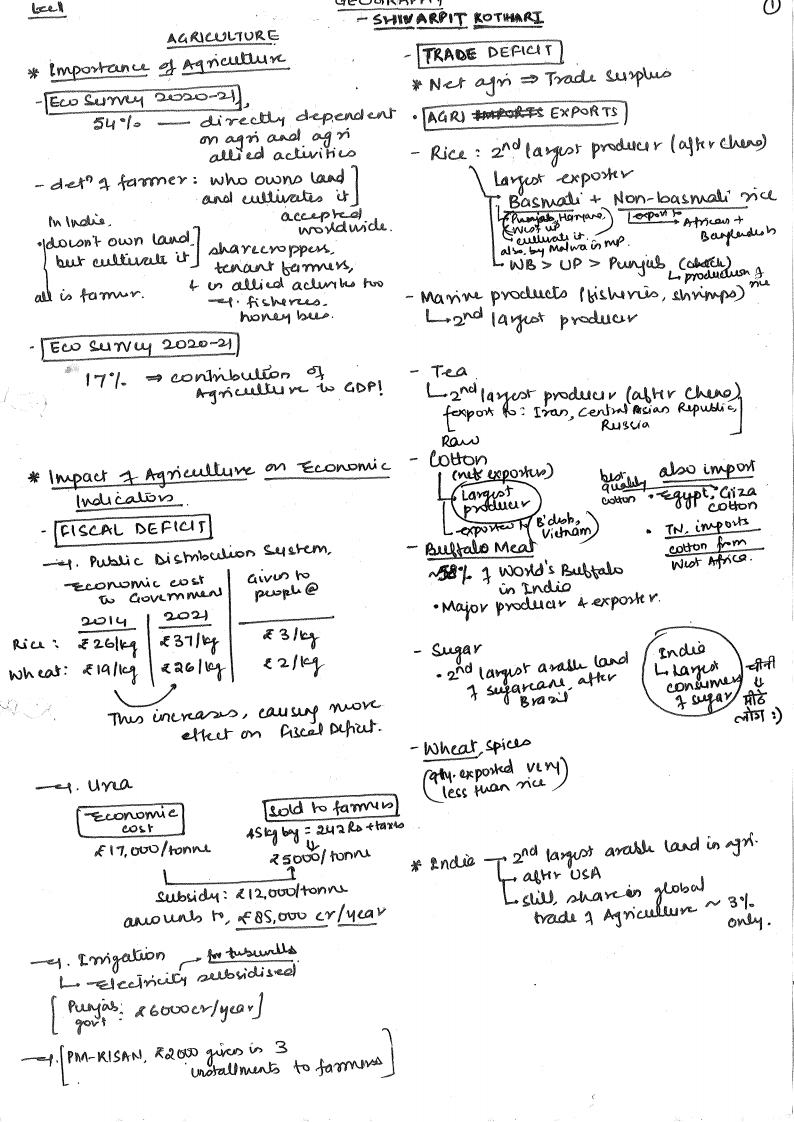 Lec 1
GEOGRAPHY
- SHIVARPIT KOTHARI
①
AGRICULTURE
* Importance of Agriculture
- Eco Survey 2020-21,
54% — directly dependent
on agri and agri
allied activities
- detⁿ of farmer: who owns land
and cultivates it
accepted
worldwide.
In India,
• doesn't own land
but cultivate it
all is famer.
sharecroppers,
tenant farmers,
& in allied activites too
→ eg. fisheries,
honey bees.
- Eco Survey 2020-21
17% ⇒ contribution of
Agriculture to GDP!
* Impact of Agriculture on Economic
Indicators
- FISCAL DEFICIT
→ eg. Public Distribution System,
Economic cost
to Government
Given to
people @
2014 2021
Rice: ₹26/kg ₹37/kg ₹3/kg
Wheat: ₹19/kg ₹26/kg ₹2/kg
This increases, causing more
effect on Fiscal Deficit.
→ eg. Urea
Economic
cost
₹17,000/tonne
Sold to farmers
45kg bag = 242 Rs + taxes
₹5000/tonne
Subsidy: ₹12,000/tonne
amounts to, ₹85,000 cr/year
→ eg. Irrigation → for tubewells
↳ Electricity subsidised
[Punjab
govt : ₹6000cr/year]
→ eg. [PM-KISAN, ₹2000 given in 3
installments to farmers]
- TRADE DEFICIT
* Net agri ⇒ Trade Surplus
• AGRI IMPORTS EXPORTS
- Rice: 2nd largest producer (after China)
Largest exporter
Basmati + Non-basmati rice
Punjab, Haryana,
West UP
cultivate it.
also by Malwa in MP.
export to → African +
Bangladesh
WB > UP > Punjab (check)
↳ production of
rice
- Marine products (fisheries, shrimps)
↳ 2nd largest producer
- Tea
↳ 2nd largest producer (after China)
[export to: Iran, Central Asian Republic,
Russia]
Raw
- Cotton
(net exporters)
Largest
producer
exported to (B'desh,
Vietnam)
best
quality
cotton
also import
• Egypt, Giza
cotton
• TN, imports
cotton from
West Africa.
- Buffalo Meat
~58% of World's Buffalo
in India
• Major producer & exporter.
- Sugar
• 2nd largest arable land
of sugarcane, after
Brazil
India
↳ Largest
consumers
of sugar
चीनी
⇓
मीठे
लोग :)
- Wheat, Spices
(qty. exported very
less than rice)
* India → 2nd largest arable land in agri.
→ after USA
↳ still, share in global
trade of Agriculture ~ 3%
only.